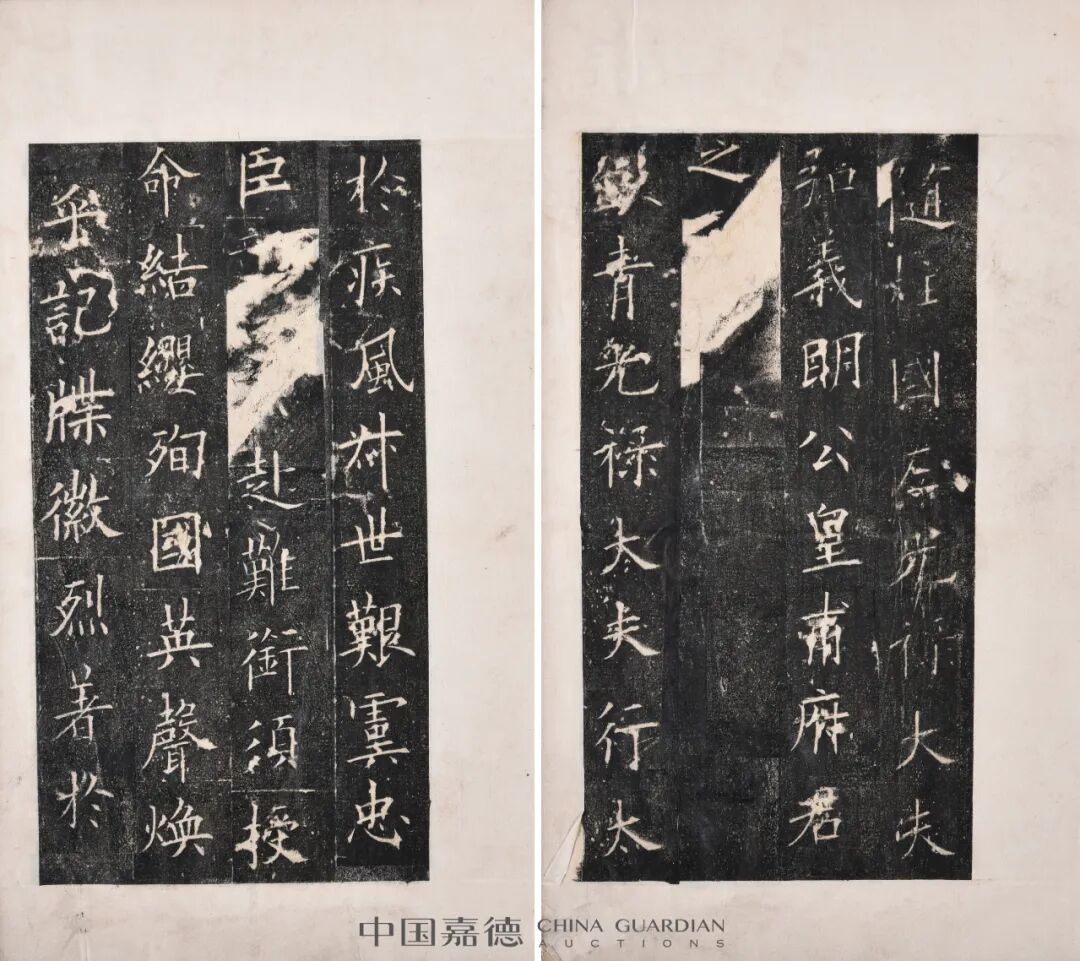 隨柱國左光祿大夫
弘義明公皇甫府君
之
銀青光祿大夫行太
於疾風世艱虖忠
臣赴難銜須授
命結纓殉國英聲煥
乎記牒徽烈著於
中国嘉德 CHINA GUARDIAN
AUCTIONS